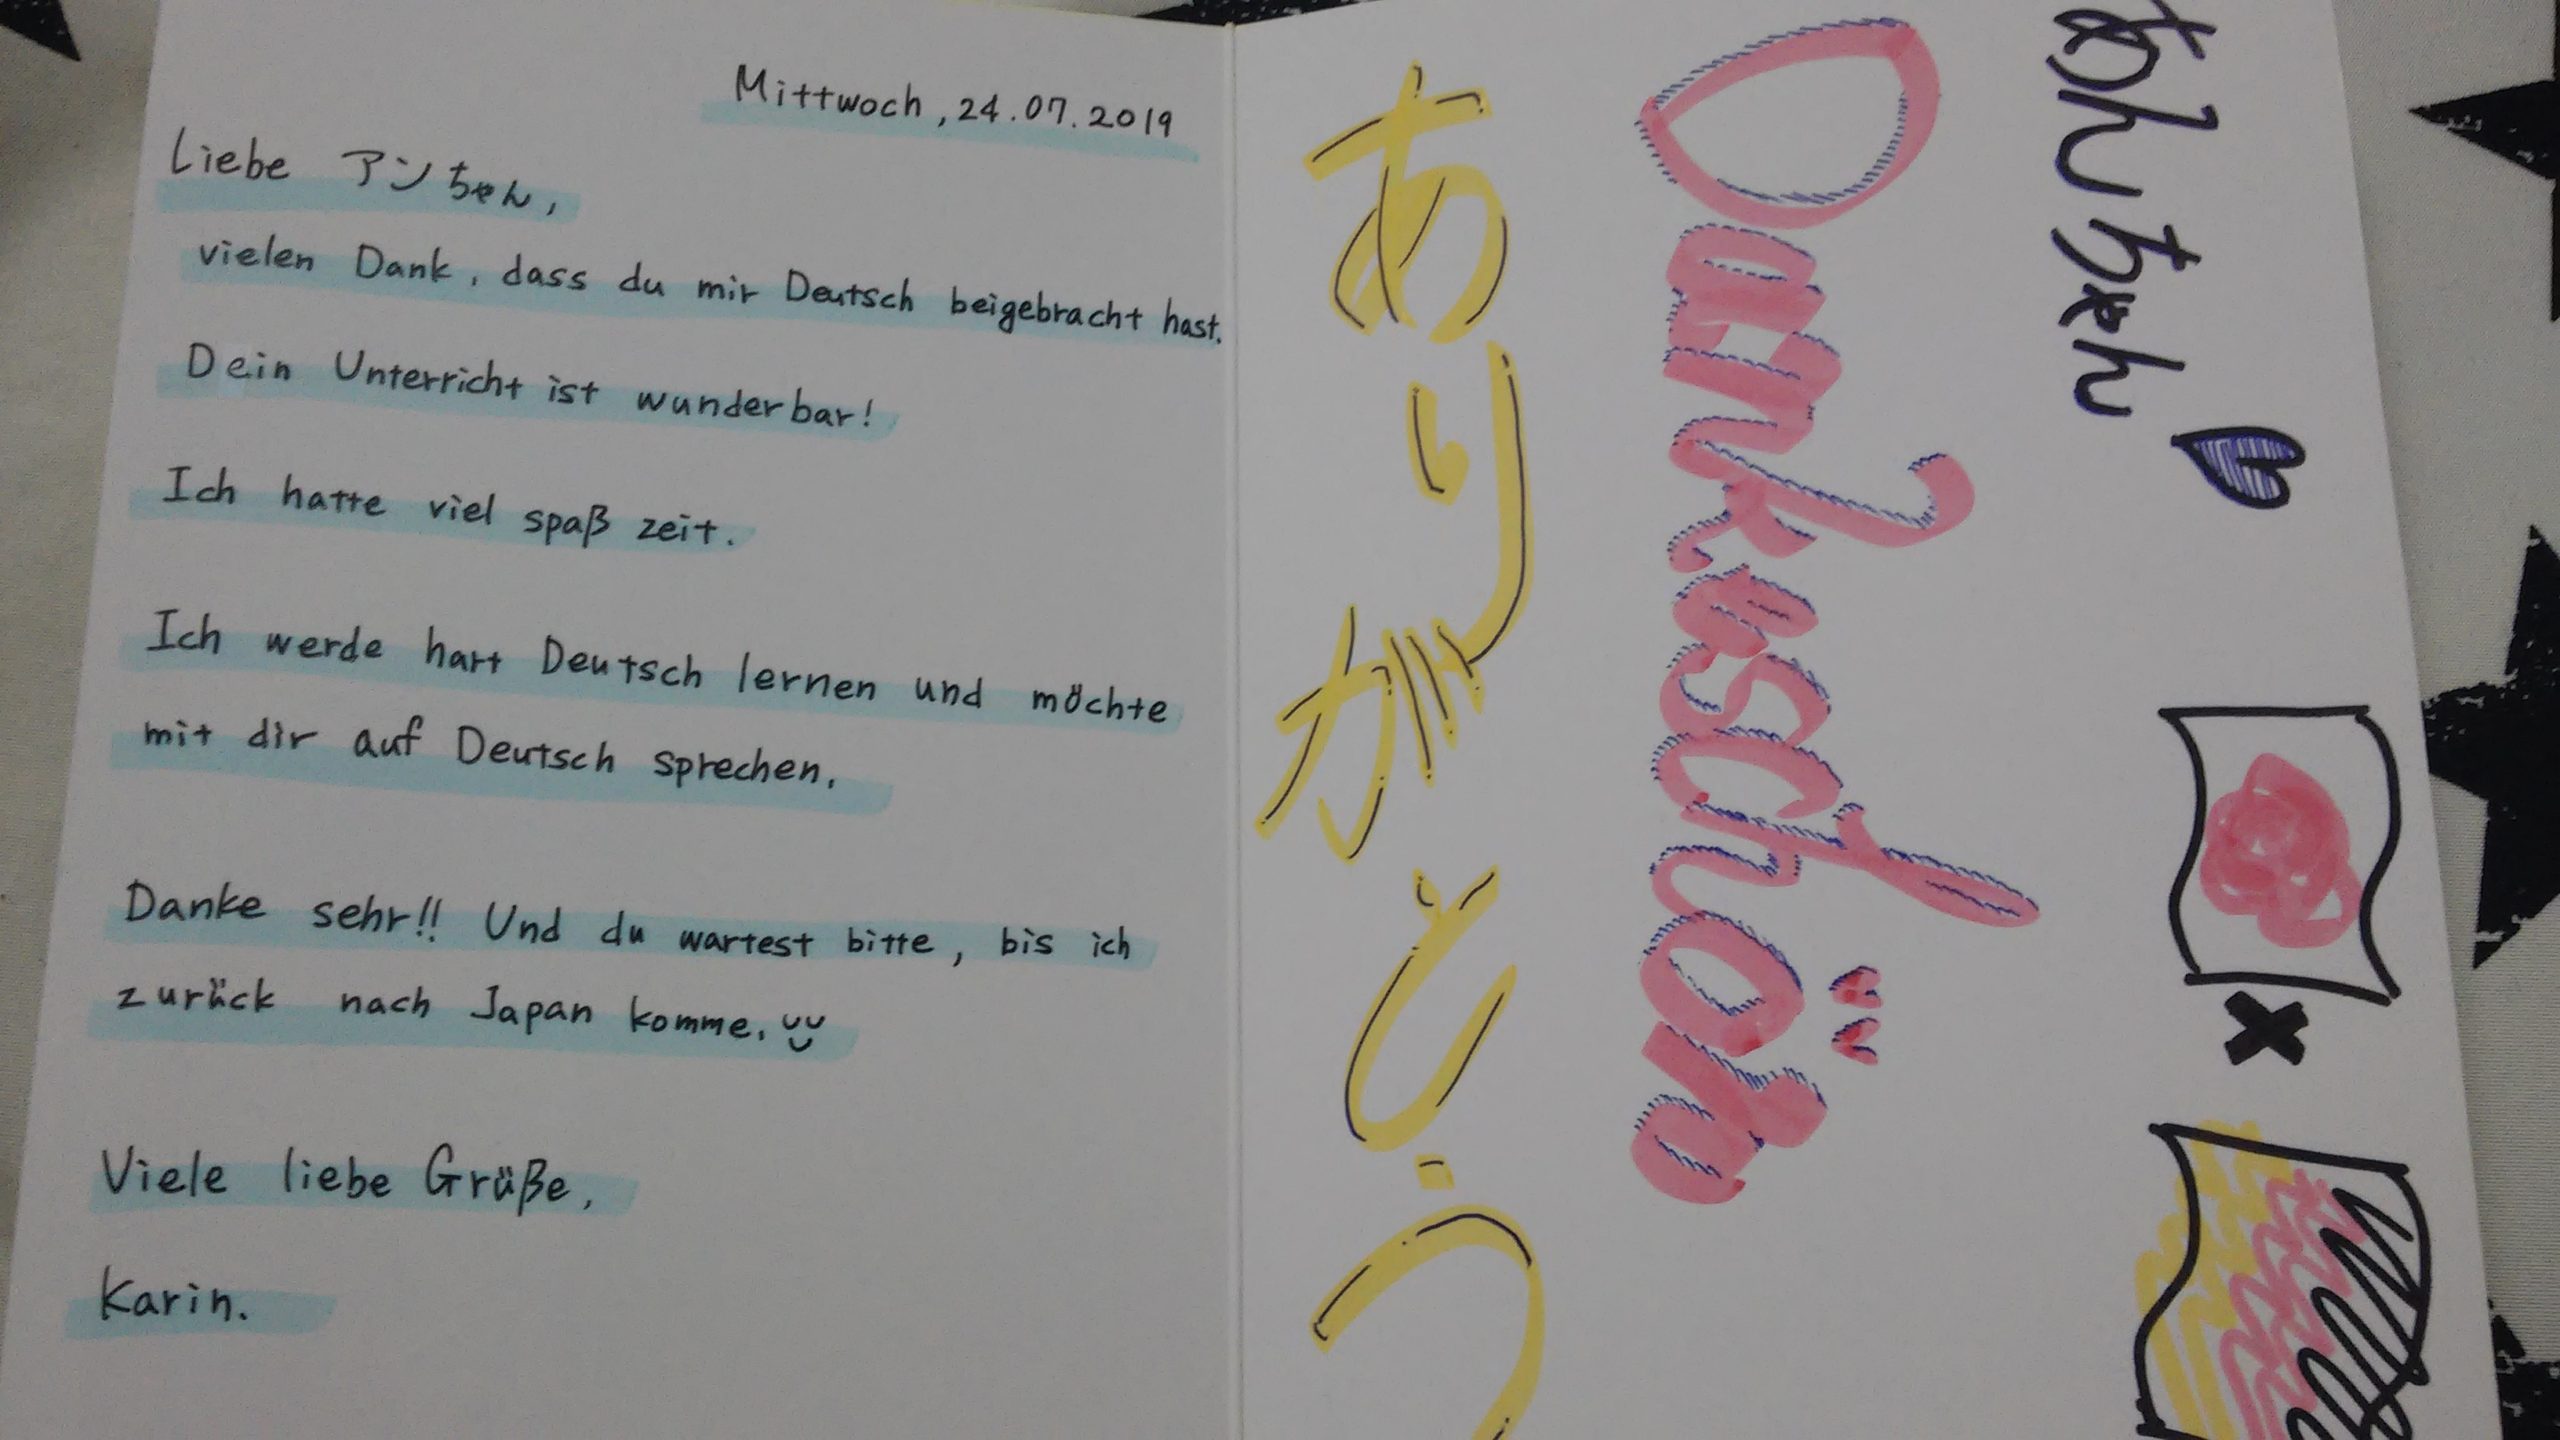 Mittwoch, 24.07.2019
Liebe アンちゃん,
vielen Dank, dass du mir Deutsch beigebracht hast.
Dein Unterricht ist wunderbar!
Ich hatte viel spaß zeit.
Ich werde hart Deutsch lernen und möchte
mit dir auf Deutsch sprechen.
Danke sehr!! Und du wartest bitte, bis ich
zurück nach Japan komme.
Viele liebe Grüße,
Karin.
あんちゃん
Dankeschön
ありがとう